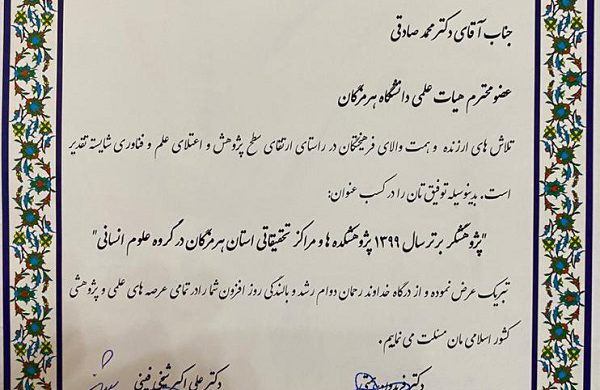 جناب آقای دکتر محمد صادقی
عضو محترم هیات علمی دانشگاه هرمزگان
تلاش های ارزنده و همت والای فرهیختگان در راستای ارتقای سطح پژوهش و اعتلای علم و فناوری شایسته تقدیر
است. بدینوسیله توفیق تان را در کسب عنوان:
"پژوهشگر برتر سال ۱۳۹۹ پژوهشکده ها و مراکز تحقیقاتی استان هرمزگان در گروه علوم انسانی"
تبریک عرض نموده و از درگاه خداوند رحمان دوام رشد و بالندگی روز افزون شما را در تمامی عرصه های علمی و پژوهشی
کشور اسلامی مان مسئلت می نماییم.
دکتر علی اکبر شیخی فینی
دکتر